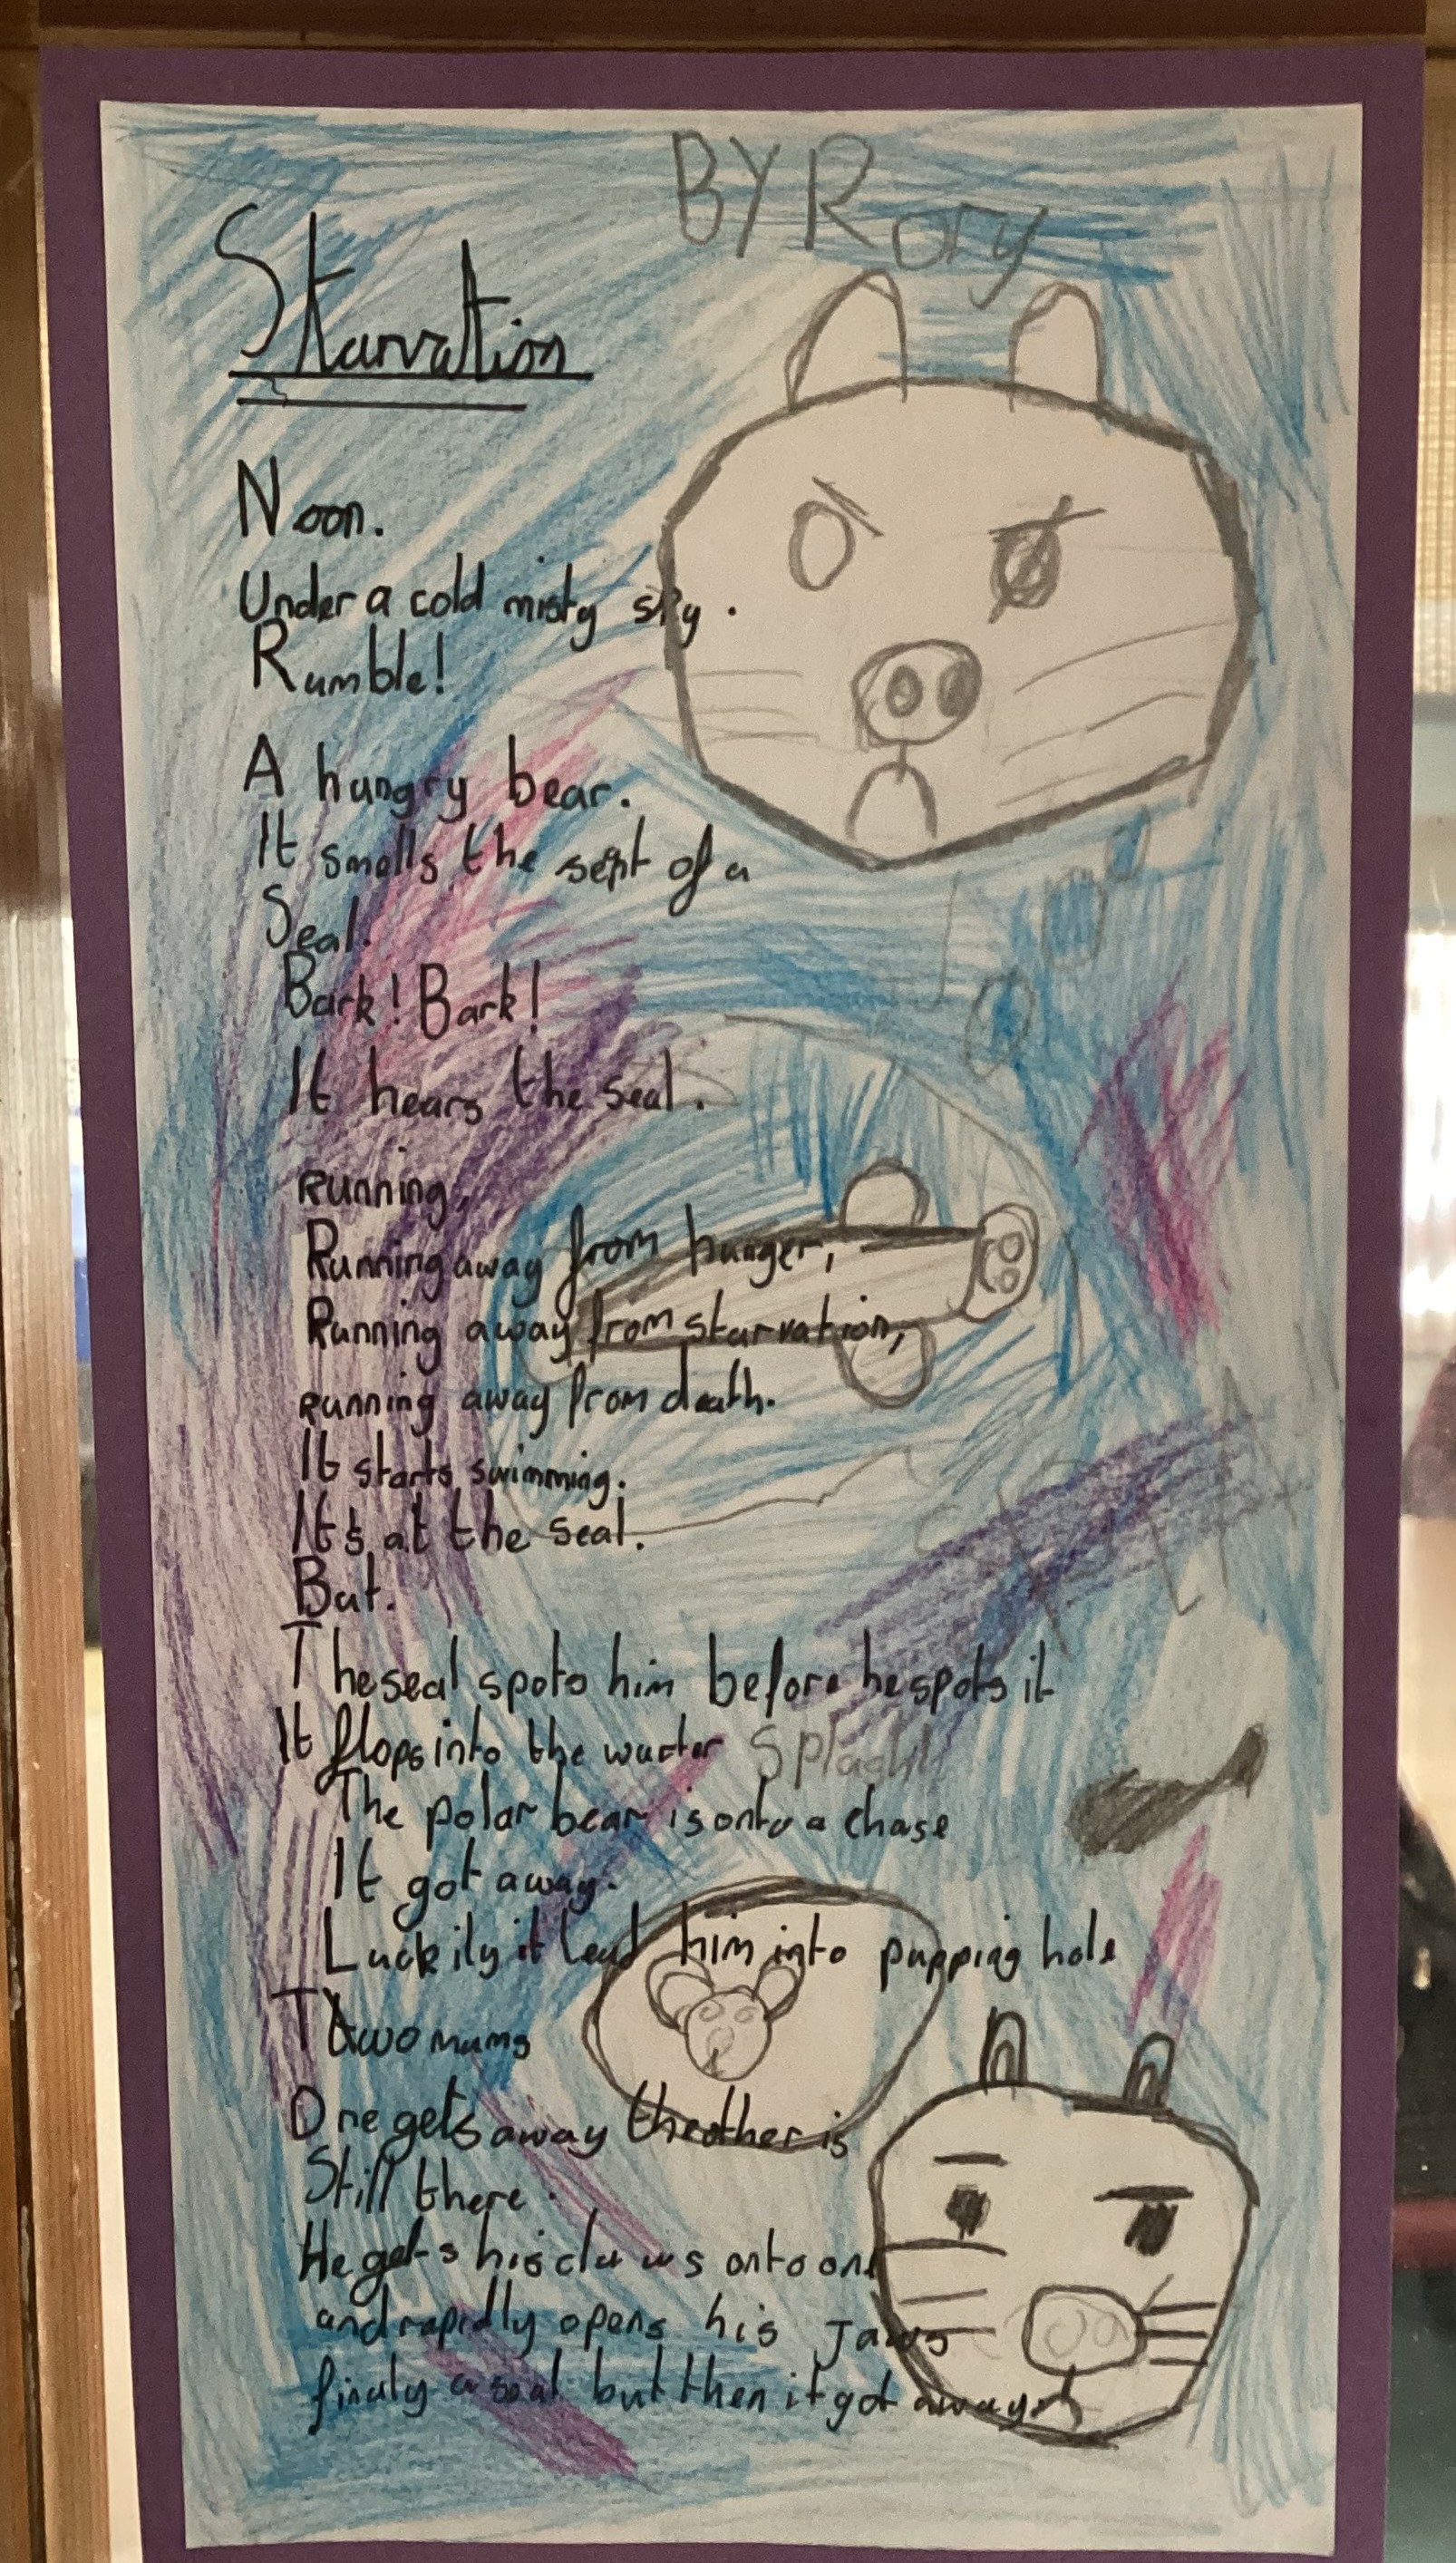 BY Rory
Starvation
Noon.
Under a cold misty sky.
Rumble!
A hungry bear.
It smells the sent of a
Seal.
Bark! Bark!
It hears the seal.
Running,
Running away from hunger,
Running away from starvation,
running away from death.
It starts swimming.
It's at the seal.
But.
The seal spots him before he spots it
It flops into the warter Splash!
The polar bear is onto a chase
It got away.
Luckily it lead him into pupping hole
Two mums
One gets away the other is
Still there.
He gets his claws onto one
and rapidly opens his Jaws
finaly a seal but then it got away.